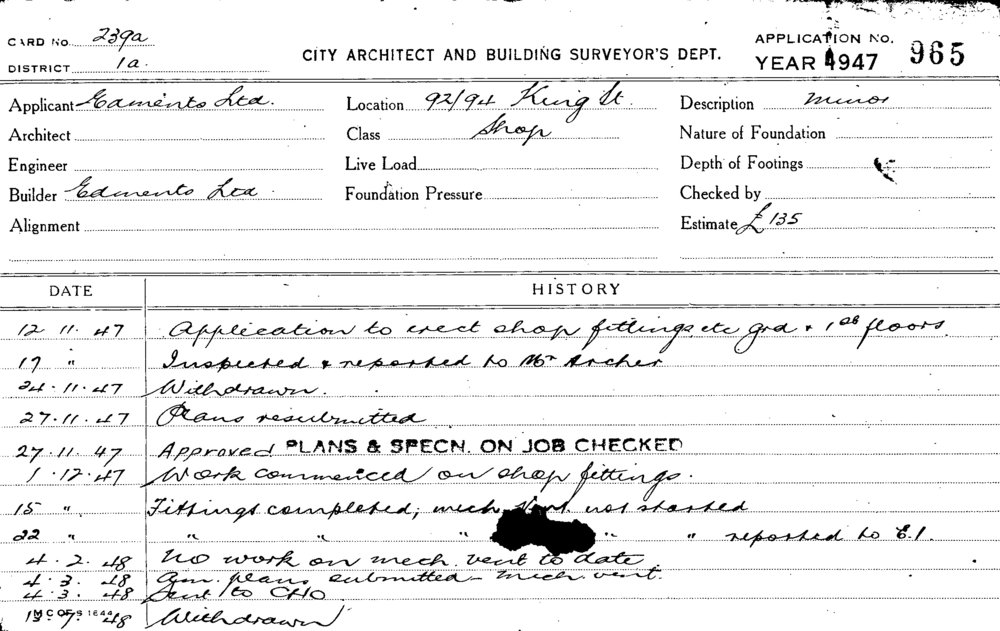 CARD NO. 239a
DISTRICT 1a.
CITY ARCHITECT AND BUILDING SURVEYOR'S DEPT.
APPLICATION NO.
YEAR 1947 965
Applicant Edments Ltd. Location 92/94 King St. Description minor
Architect Class Shop Nature of Foundation
Engineer Live Load Depth of Footings
Builder Edments Ltd. Foundation Pressure Checked by
Alignment Estimate £135
DATE HISTORY
12 11. 47 Application to erect shop fittings etc grd & 1st floors.
17 " Inspected & reported to Mr Archer
24.11.47 Withdrawn.
27.11.47 Plans resubmitted
27.11.47 Approved PLANS & SPECN. ON JOB CHECKED
1.12.47 Work commenced on shop fittings.
15 " Fittings completed; mech vent not started
22 " " " " " " reported to E.I.
4.2.48 No work on mech. vent to date
4.3.48 Am. plans submitted - mech. vent.
4.3.48 Sent to CHO
M C OF S 1844
13.7.48 Withdrawn